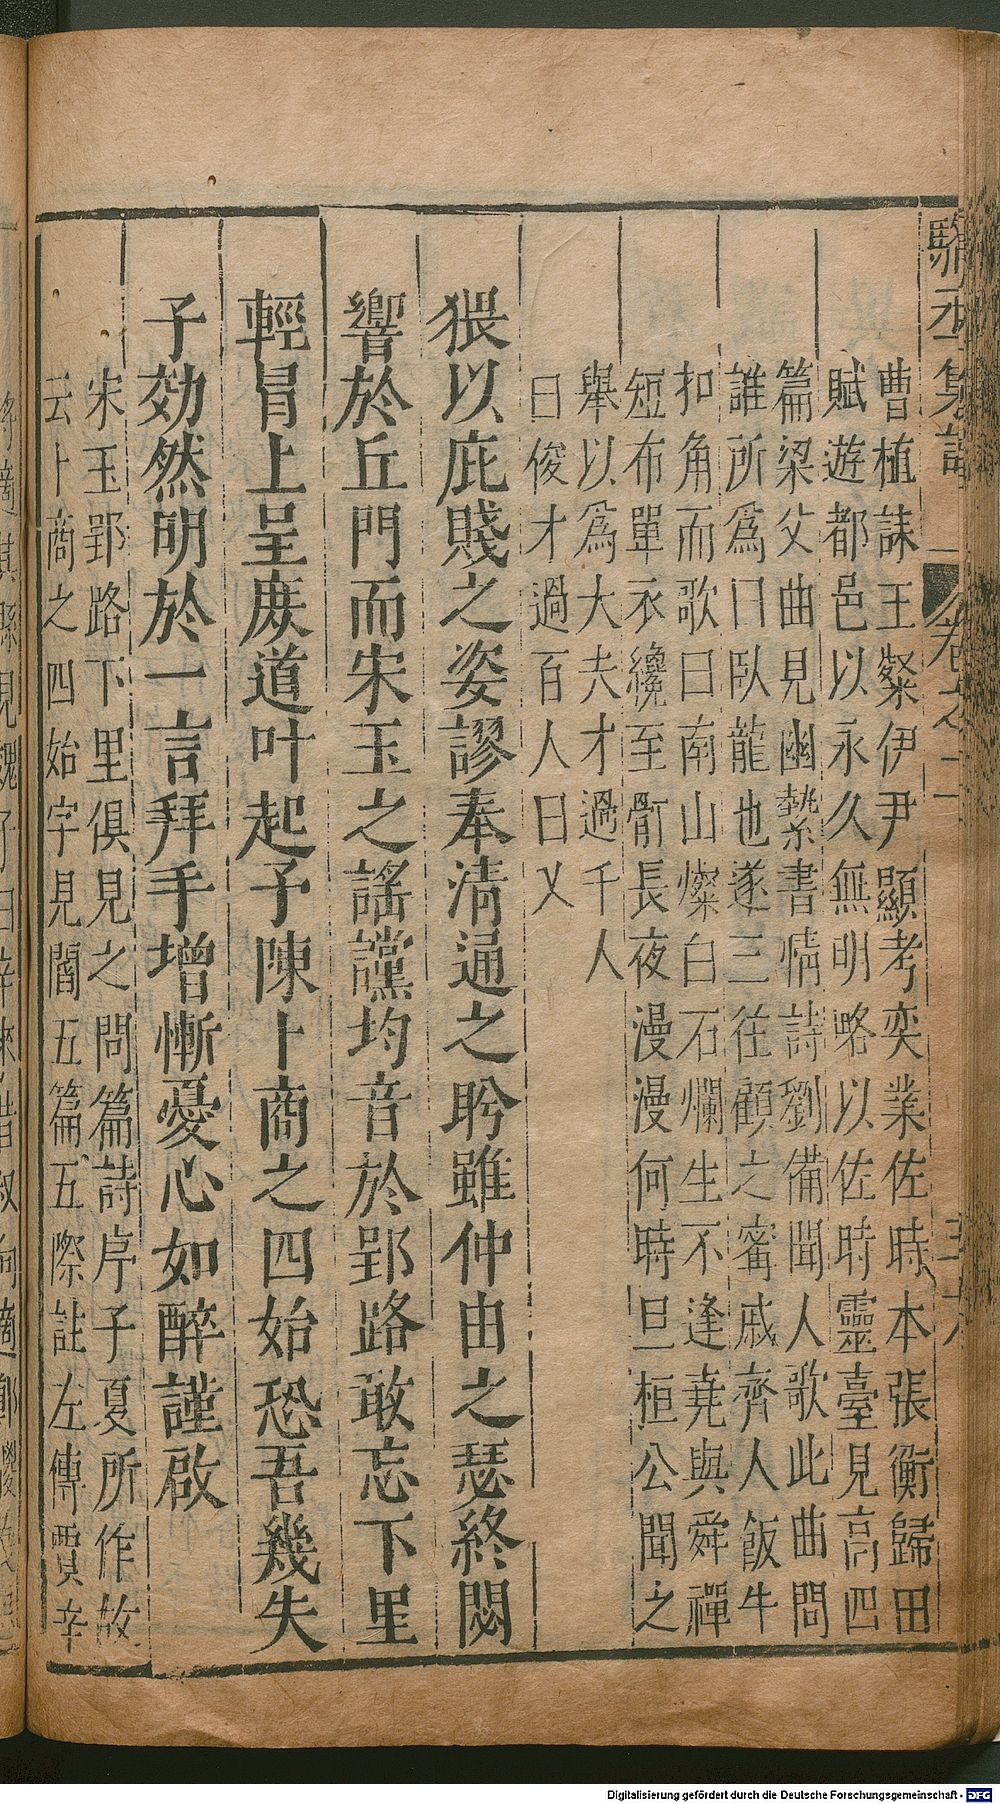 曹植誄王粲伊尹顯考奕業佐時本張衡歸田
賦遊都邑以永久無明略以佐時靈臺見高四
篇梁父曲見幽縶書情詩劉備聞人歌此曲問
誰所爲曰臥龍也遂三往顧之甯戚齊人飯牛
扣角而歌曰南山燦白石爛生不逢堯與舜禪
短布單衣纔至骭長夜漫漫何時旦桓公聞之
舉以爲大夫才過千人
曰俊才過百人曰乂
猥以庇賤之姿謬奉淸通之盻雖仲由之瑟終閟
響於丘門而宋玉之謠讜均音於郢路敢忘下里
輕冒上呈庶道叶起予陳卜商之四始恐吾幾失
子効然明於一言拜手增慚憂心如醉謹啟
宋玉郢路下里俱見之問篇詩序子夏所作故
云卜商之四始字見閻五篇五際註左傳賈辛
卷之二
Digitalisierung gefördert durch die Deutsche Forschungsgemeinschaft - DFG